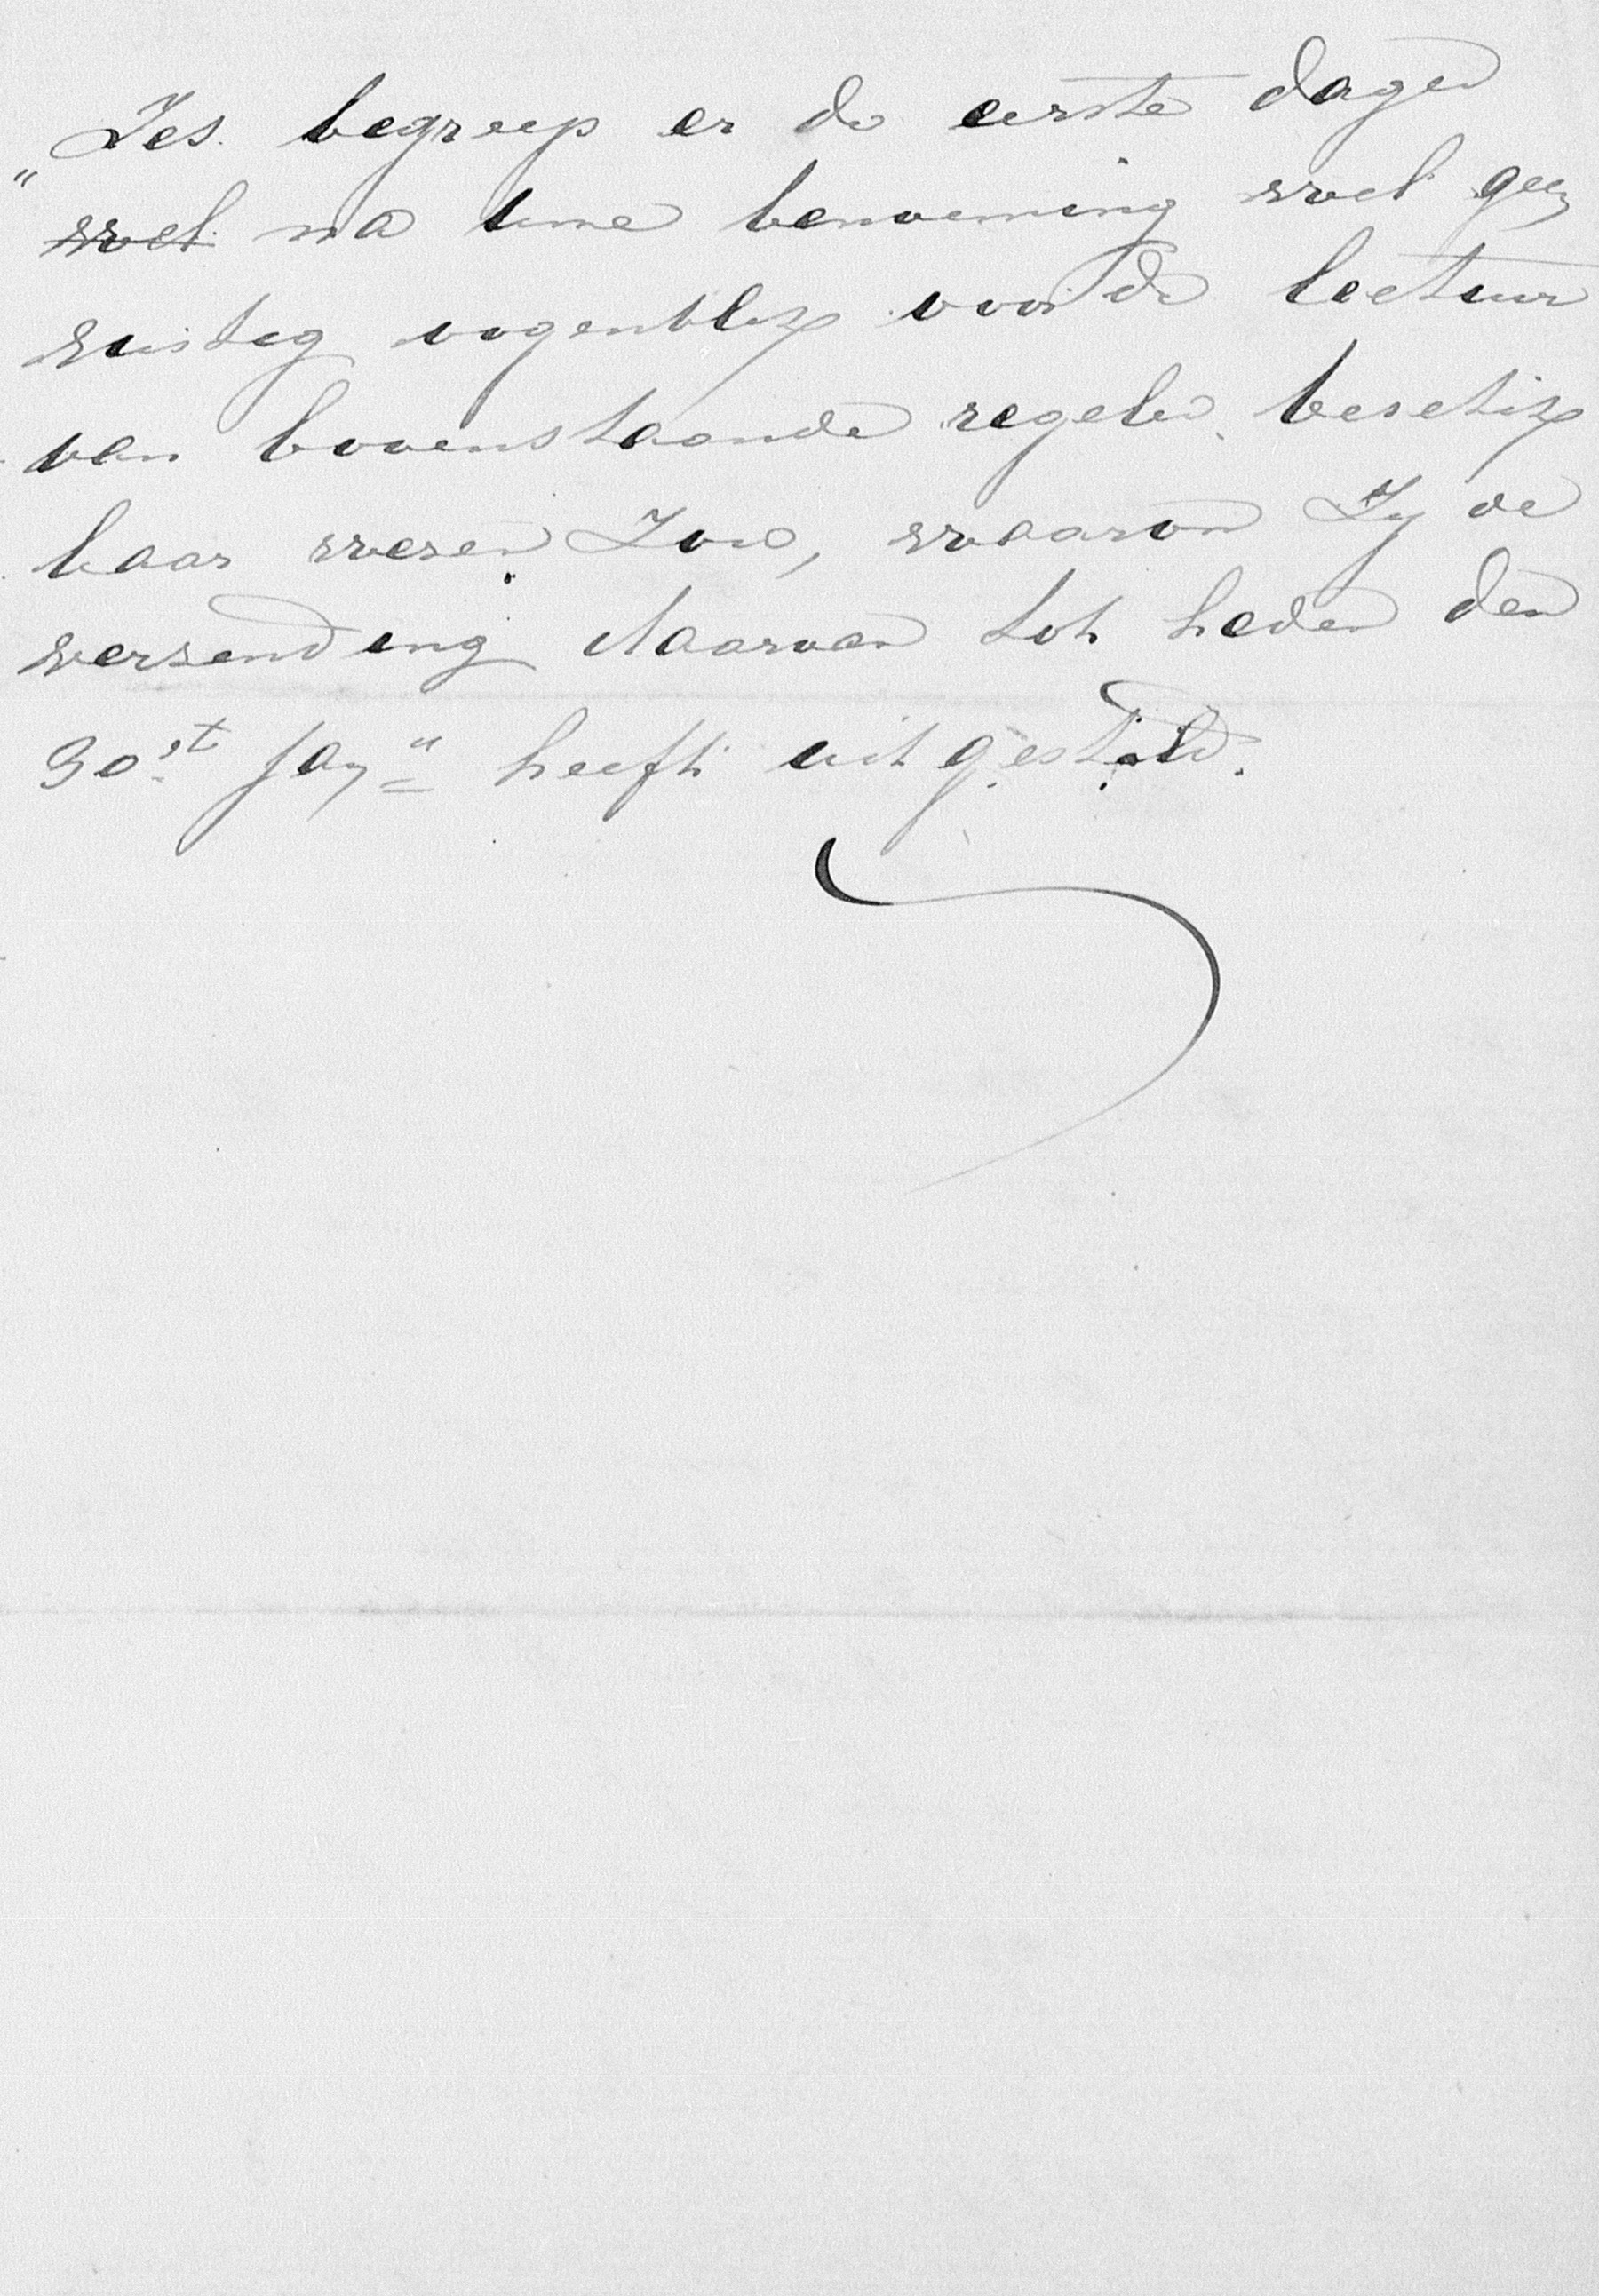 „Zes. begreep er de eerste dagen
wel na uwe benoeming wel geen
rustig oogenblik voor de lectuur
van bovenstaande regelen beschik
baar wezen zou, waarom Zy de
verzending daarvan tot heden den
30st. Jany" heeft uitgesteld.